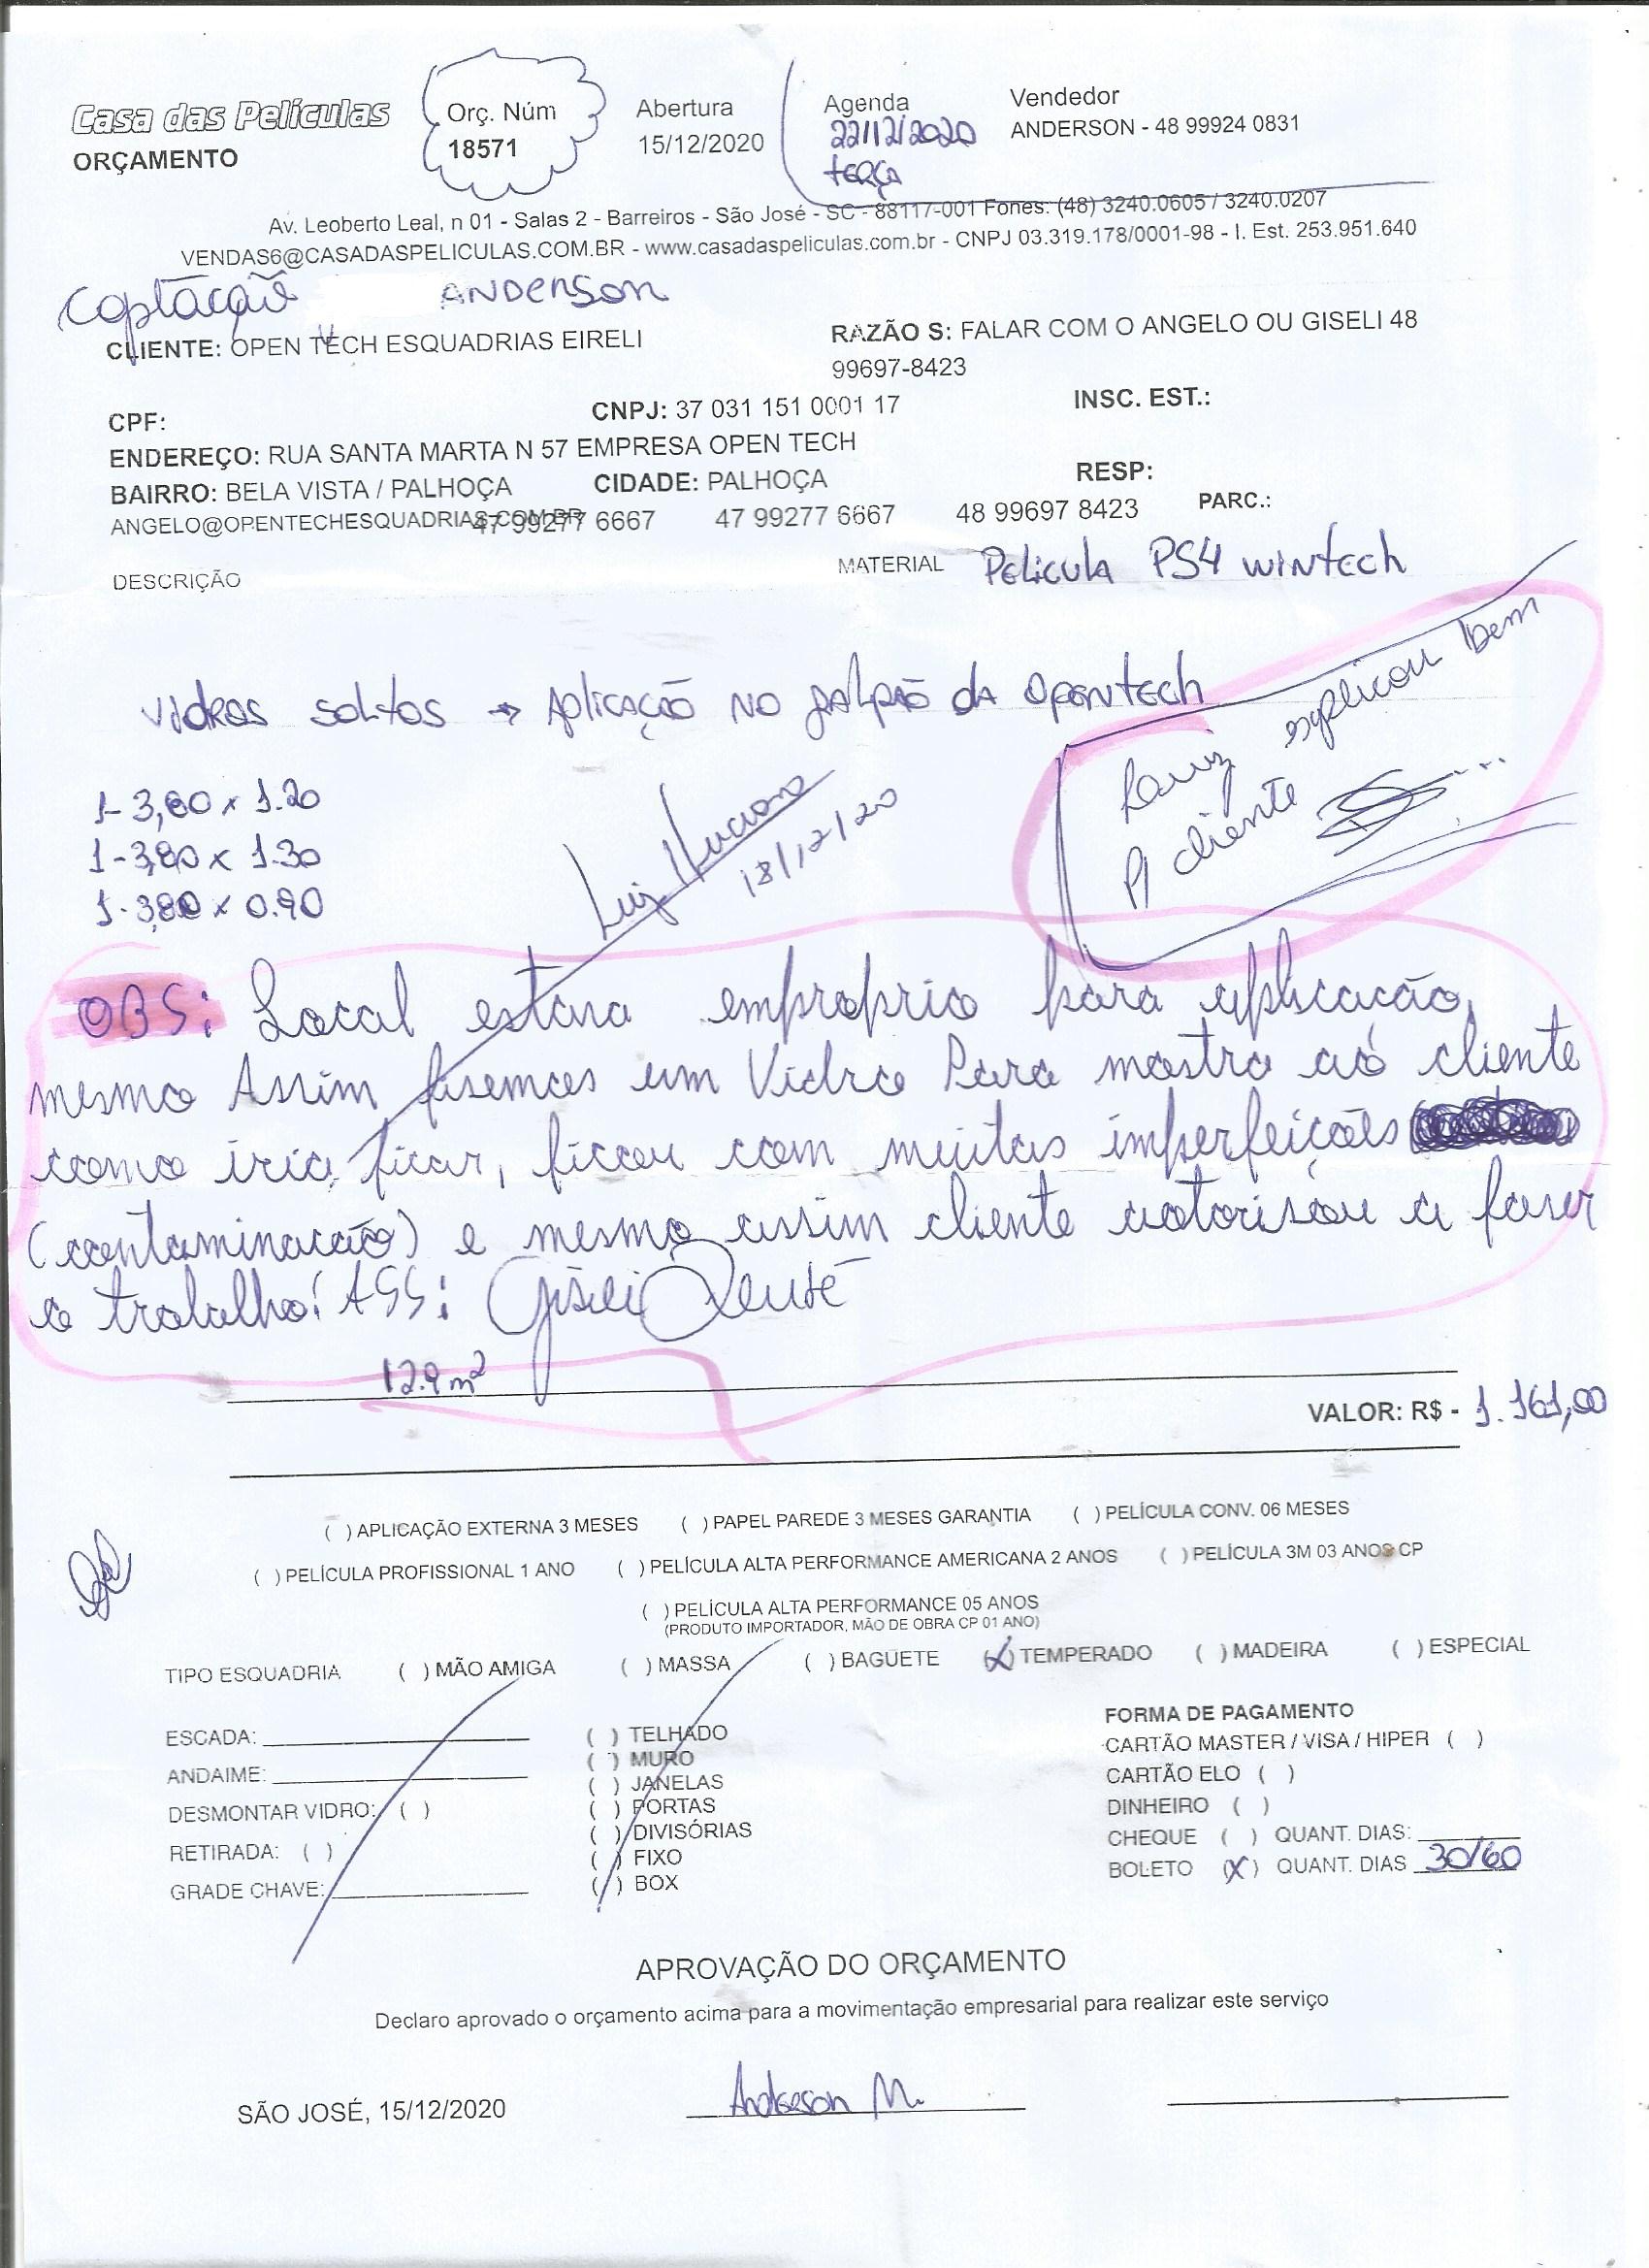 Casa das Películas
ORÇAMENTO
Orç. Núm
18571
Abertura
15/12/2020
Agenda
22/12/2020
terça
Vendedor
ANDERSON - 48 99924 0831
Av. Leoberto Leal, n 01 - Salas 2 - Barreiros - São José - SC - 88117-001 Fones: (48) 3240.0605 / 3240.0207
VENDAS6@CASADASPELICULAS.COM.BR - www.casadaspeliculas.com.br - CNPJ 03.319.178/0001-98 - I. Est. 253.951.640
ANDERSON
CLIENTE: OPEN TECH ESQUADRIAS EIRELI
RAZÃO S: FALAR COM O ANGELO OU GISELI 48
99697-8423
CPF:
CNPJ: 37 031 151 0001 17
INSC. EST.:
ENDEREÇO: RUA SANTA MARTA N 57 EMPRESA OPEN TECH
BAIRRO: BELA VISTA / PALHOÇA
CIDADE: PALHOÇA
RESP:
ANGELO@OPENTECHESQUADRIAS.COM.BR
47 99277 6667
47 99277 6667
48 99697 8423
PARC.:
DESCRIÇÃO
MATERIAL Pelicula PS4 wintech
Vidros soltos → Aplicação no galpão da Opentech
Luiz explicou bem
p/ cliente
1- 3,80 x 1.20
1- 3,80 x 1.30
1- 3,80 x 0.90
Luiz
18/12/20
OBS: Local estava emproprio para aplicacão,
mesmo Assim fisemos um Vidro Para mostra aó cliente
como iria ficar, ficou com muitas imperfeições
(contaminacão) e mesmo assim cliente autorisou a faser
o trabalho! ASS: Giseli
12.9 m²
VALOR: R$ - 1.161,00
( ) APLICAÇÃO EXTERNA 3 MESES ( ) PAPEL PAREDE 3 MESES GARANTIA ( ) PELÍCULA CONV. 06 MESES
( ) PELÍCULA PROFISSIONAL 1 ANO ( ) PELÍCULA ALTA PERFORMANCE AMERICANA 2 ANOS ( ) PELÍCULA 3M 03 ANOS CP
( ) PELÍCULA ALTA PERFORMANCE 05 ANOS
(PRODUTO IMPORTADOR, MÃO DE OBRA CP 01 ANO)
TIPO ESQUADRIA ( ) MÃO AMIGA ( ) MASSA ( ) BAGUETE (X) TEMPERADO ( ) MADEIRA ( ) ESPECIAL
ESCADA:
ANDAIME:
DESMONTAR VIDRO: ( )
RETIRADA: ( )
GRADE CHAVE:
( ) TELHADO
( ) MURO
( ) JANELAS
( ) PORTAS
( ) DIVISÓRIAS
( ) FIXO
( ) BOX
FORMA DE PAGAMENTO
CARTÃO MASTER / VISA / HIPER ( )
CARTÃO ELO ( )
DINHEIRO ( )
CHEQUE ( ) QUANT. DIAS:
BOLETO (X) QUANT. DIAS 30/60
APROVAÇÃO DO ORÇAMENTO
Declaro aprovado o orçamento acima para a movimentação empresarial para realizar este serviço
SÃO JOSÉ, 15/12/2020
Anderson M.